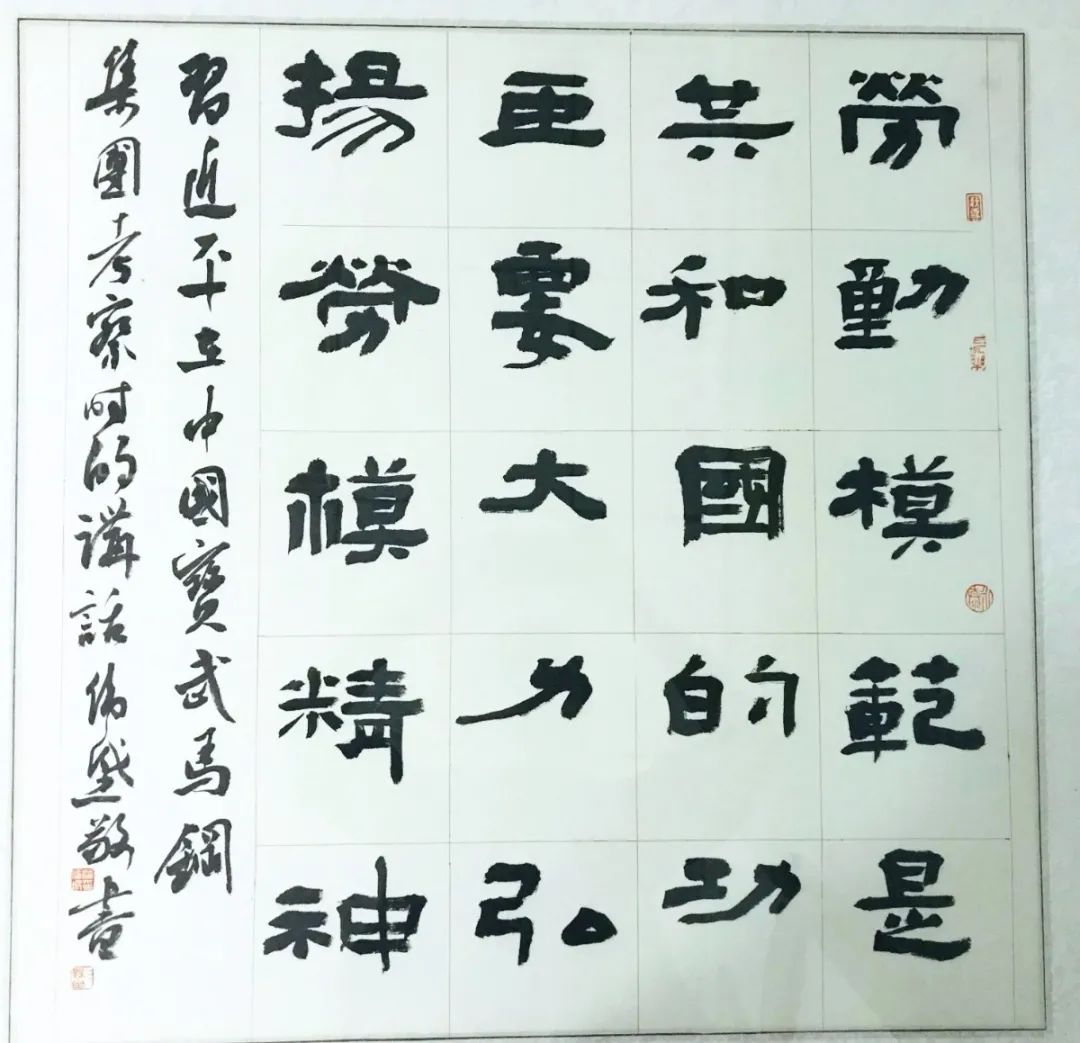 勞動模範是
共和國的功
臣要大力弘
揚勞模精神
習近平在中國寶武馬鋼
集團考察时的講話 敬書